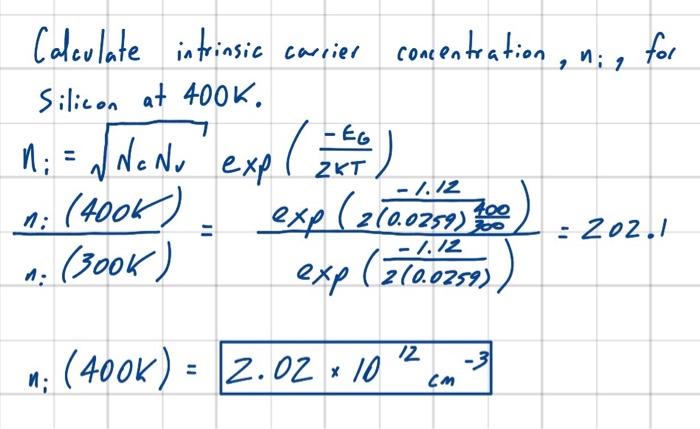 Calculate intrinsic carrier concentration, ni, for
Silicon at 400K.
ni = √NcNv exp(-EG/2KT)
ni(400K)/ni(300K) = exp(-1.12/2(0.0259)400/300)/exp(-1.12/2(0.0259)) = 202.1
ni(400K) = 2.02 × 10^12 cm^-3